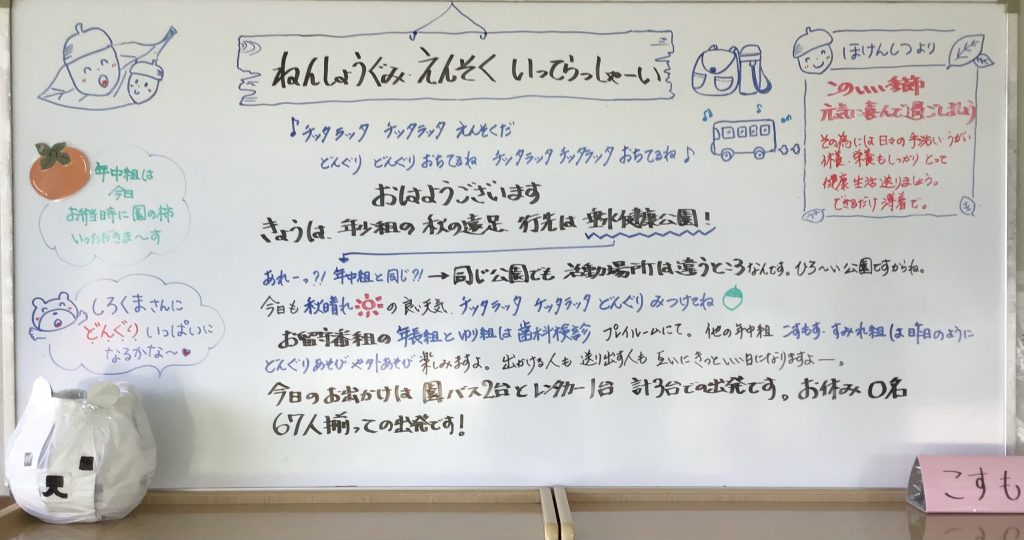 ねんしょうぐみ えんそく いってらっしゃーい
♪チッタラッタ チッタラッタ えんそくだ
どんぐり どんぐり おちてるね チッタラッタ チッタラッタ おちてるね♪
おはようございます
きょうは、年少組の 秋の遠足 行先は 垂水健康公園!
あれーっ?! 年中組と同じ?! → 同じ公園でも 活動場所は違うところなんです。ひろ〜い公園ですからね。
今日も 秋晴れ の良い天気、チッタラッタ チッタラッタ どんぐり みつけてね
お留守番組の 年長組とゆり組は 歯科検診 プレイルームにて。 他の年中組 こすもす・すみれ組は 昨日のように
どんぐりあそびや外あそび 楽しみますよ。 出かける人も 送り出す人も 互いにきっといい日になりますよー。
今日のお出かけは 園バス2台とレンタカー1台 計3台での出発です。お休み0名
67人揃っての出発です!
年中組は
今日
お弁当時に 園の柿
いっただきま〜す
しろくまさんに
どんぐり いっぱいに
なるかな〜
ほけんしつより
このいい季節
元気に喜んで過ごしましょう
その為には 日々の 手洗い うがい
休養・栄養もしっかり とって
健康 生活 送りましょう。
できるだけ 薄着で。
こすも